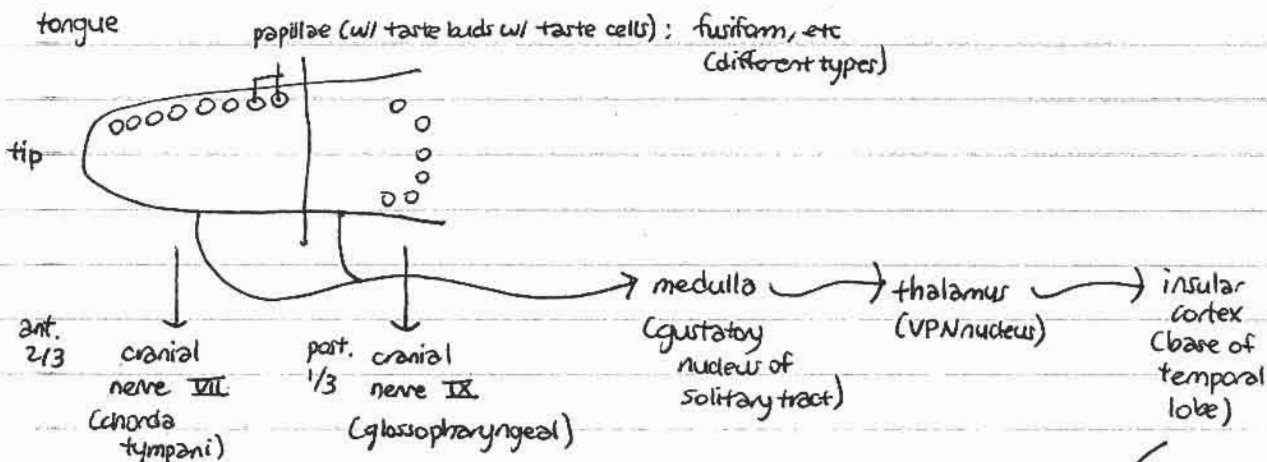 tongue
papillae (w/ taste buds w/ taste cells) : fusiform, etc
(different types)
tip
ant.
2/3
cranial
nerve VII
(chorda
tympani)
post.
1/3
cranial
nerve IX
(glossopharyngeal)
medulla
(gustatory
nucleus of
solitary tract)
thalamus
(VPN nucleus)
insular
cortex
(base of
temporal
lobe)